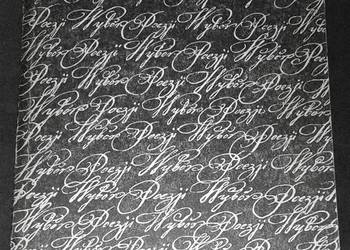 Wybór Poezji Wybór Poezji Wybór
Poezji Wybór Poezji Wybór Poezji
Wybór Poezji Wybór Poezji Wybór
Poezji Wybór Poezji Wybór Poezji
Wybór Poezji Wybór Poezji Wybór
Poezji Wybór Poezji Wybór Poezji
Wybór Poezji Wybór Poezji Wybór
Poezji Wybór Poezji Wybór Poezji
Wybór Poezji Wybór Poezji Wybór
Poezji Wybór Poezji Wybór Poezji